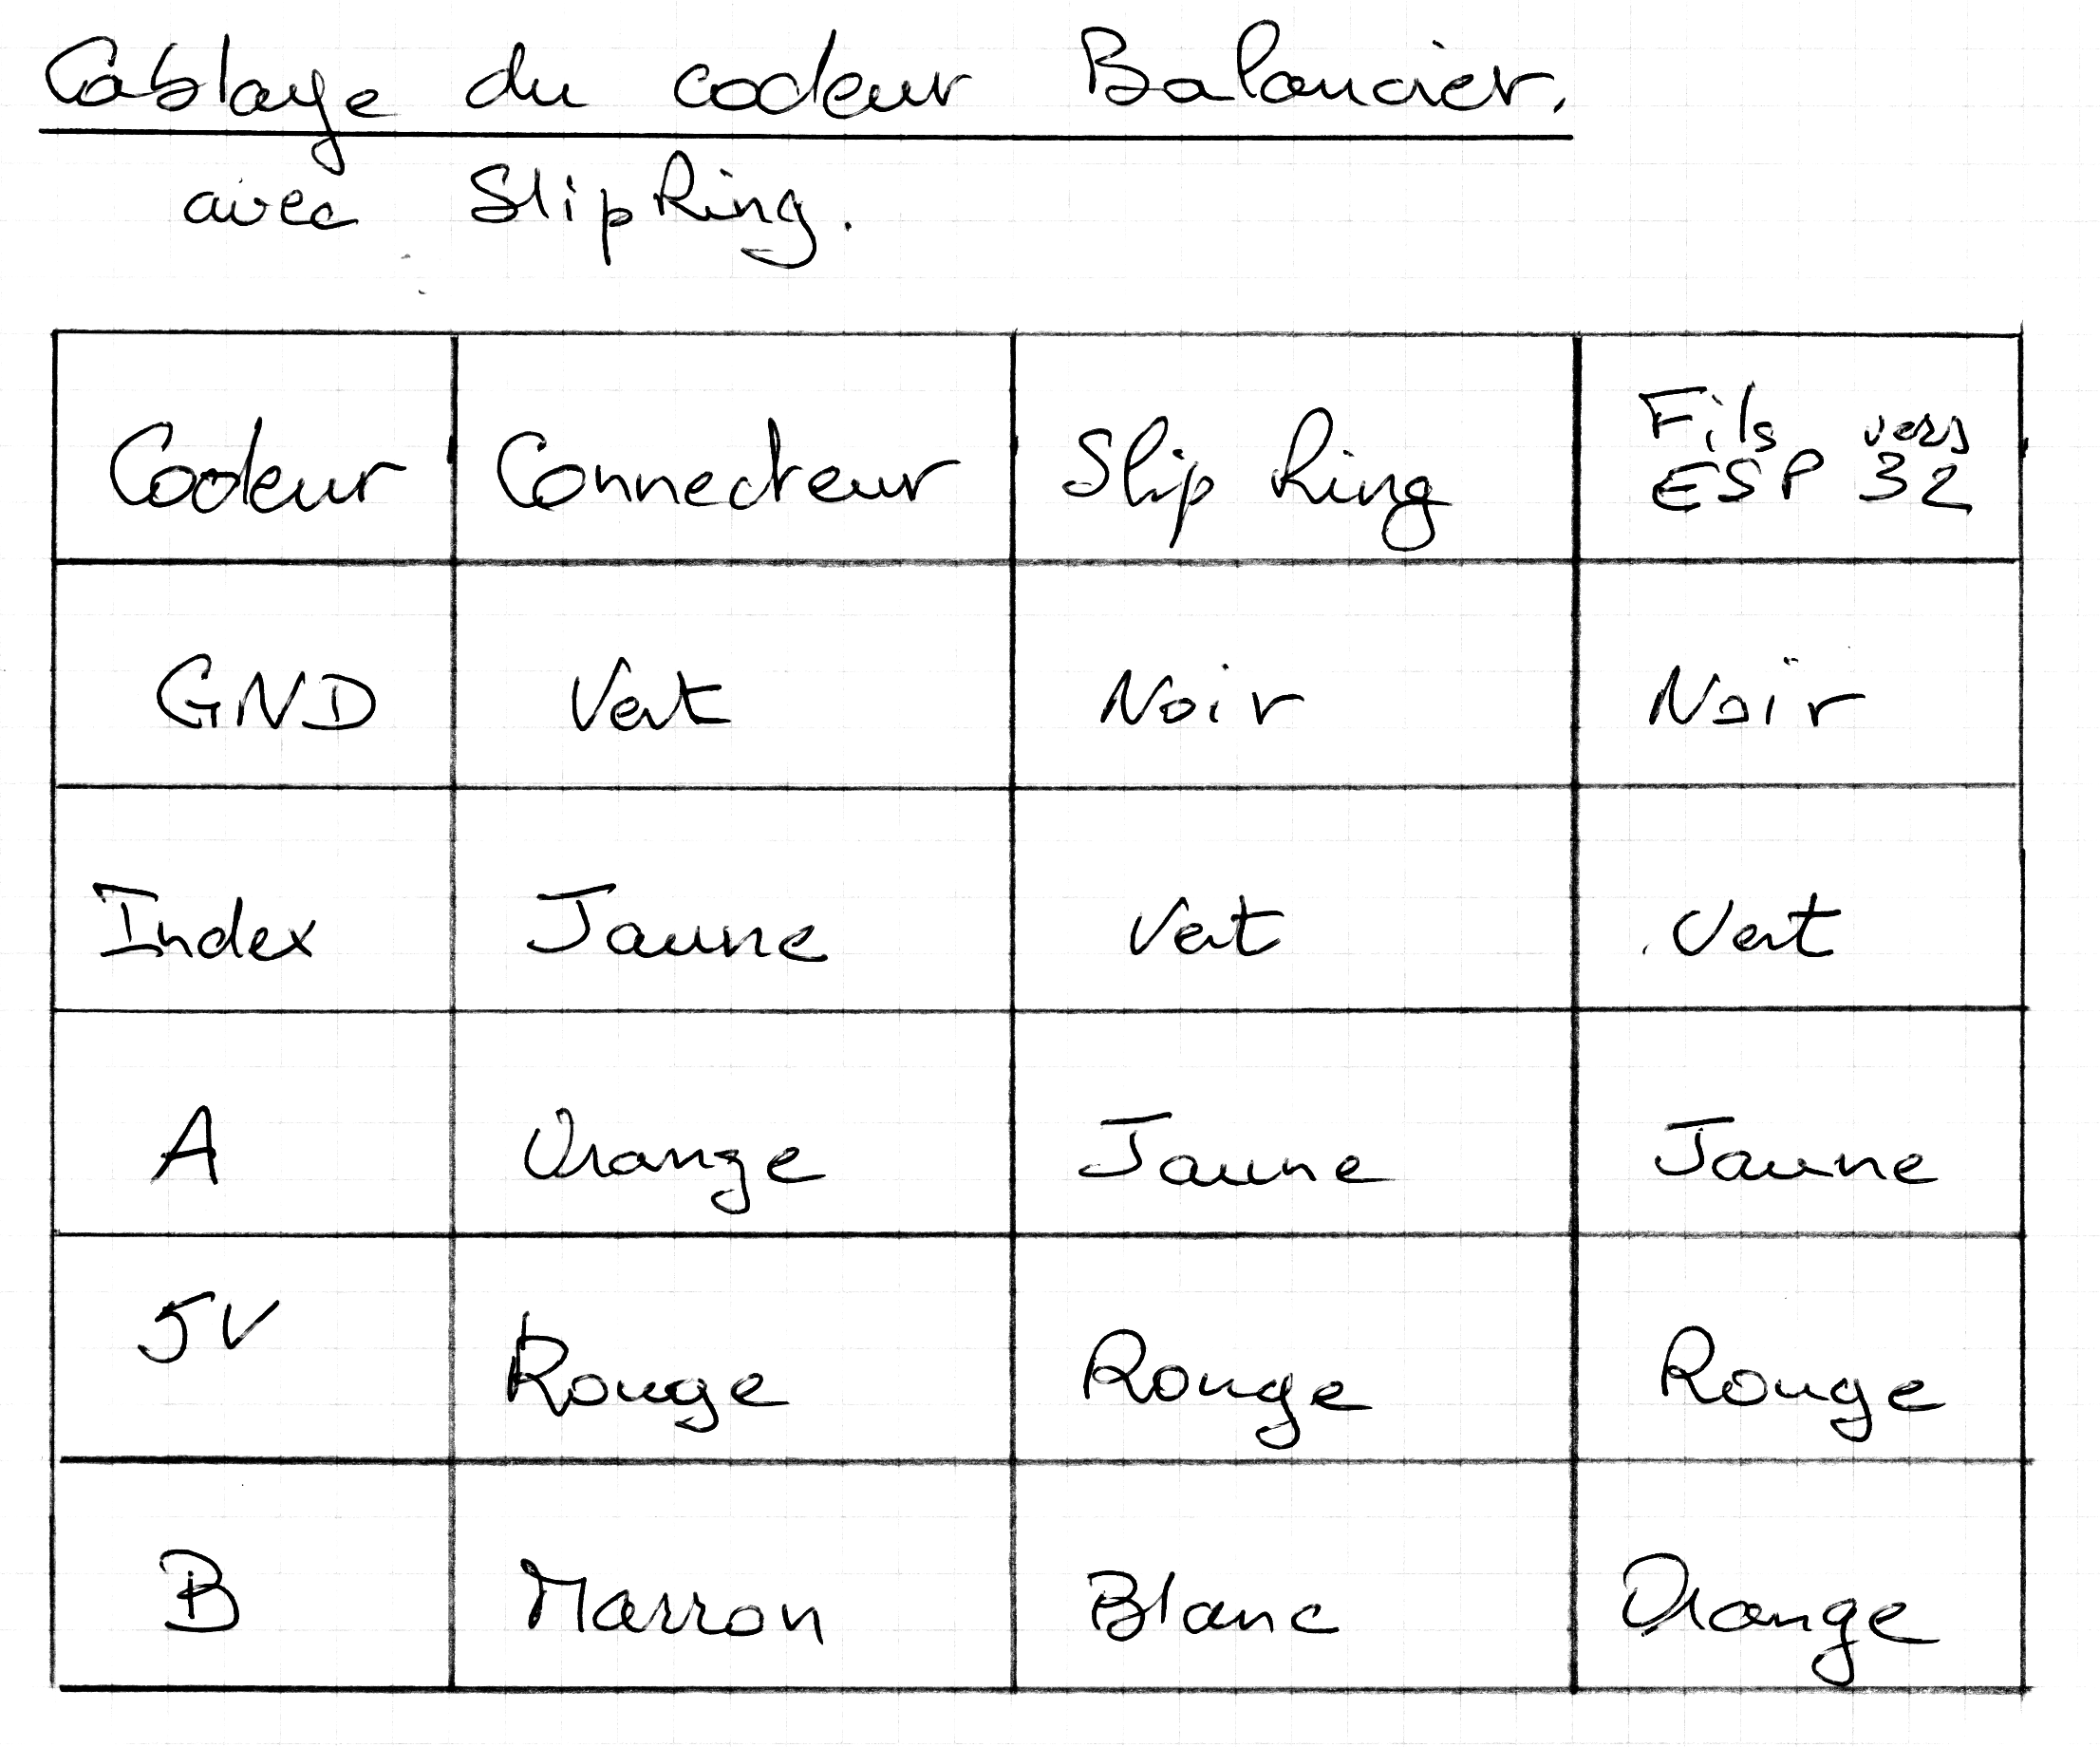 Cablage du codeur Balancier.
avec SlipRing.
Codeur Connecteur Slip Ring Fils vers ESP 32
GND Vert Noir Noir
Index Jaune Vert Vert
A Orange Jaune Jaune
5V Rouge Rouge Rouge
B Marron Blanc Orange